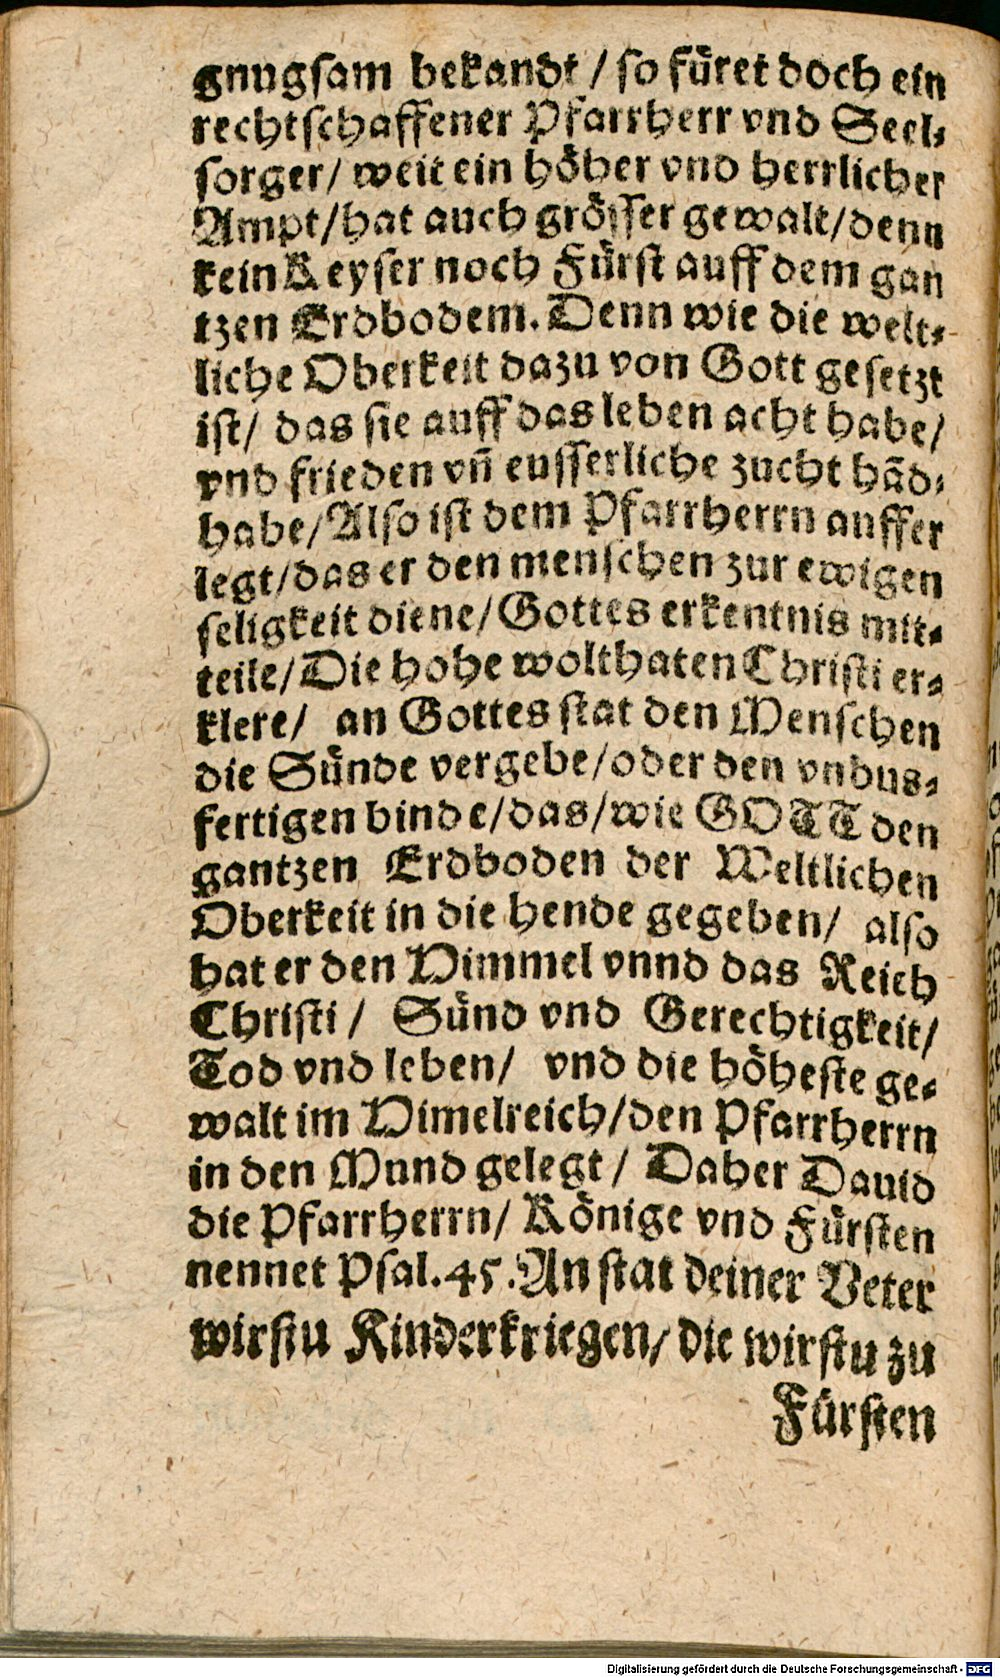 gnugsam bekandt / so füret doch ein
rechtschaffener Pfarrherr vnd Seel-
sorger/ weit ein höher vnd herrlicher
Ampt/hat auch grösser gewalt/denn
kein Keyser noch Fürst auff dem gan
tzen Erdbodem. Denn wie die welt-
liche Oberkeit dazu von Gott gesetzt
ist/ das sie auff das leben acht habe/
vnd frieden vñ eusserliche zucht hãd-
habe/Also ist dem Pfarrherrn auffer
legt/das er den menschen zur ewigen
seligkeit diene/Gottes erkentnis mit-
teile/Die hohe wolthaten Christi er-
klere/ an Gottes stat den Menschen
die Sünde vergebe/oder den vnbus-
fertigen binde/das/wie GOTT den
gantzen Erdboden der Weltlichen
Oberkeit in die hende gegeben/ also
hat er den Himmel vnnd das Reich
Christi / Sünd vnd Gerechtigkeit/
Tod vnd leben/ vnd die höheste ge-
walt im Himelreich/den Pfarrherrn
in den Mund gelegt / Daher Dauid
die Pfarrherrn/ Könige vnd Fürsten
nennet Psal.45. An stat deiner Veter
wirstu Kinder kriegen/ die wirstu zu
Fürsten
Digitalisierung gefördert durch die Deutsche Forschungsgemeinschaft - DFG